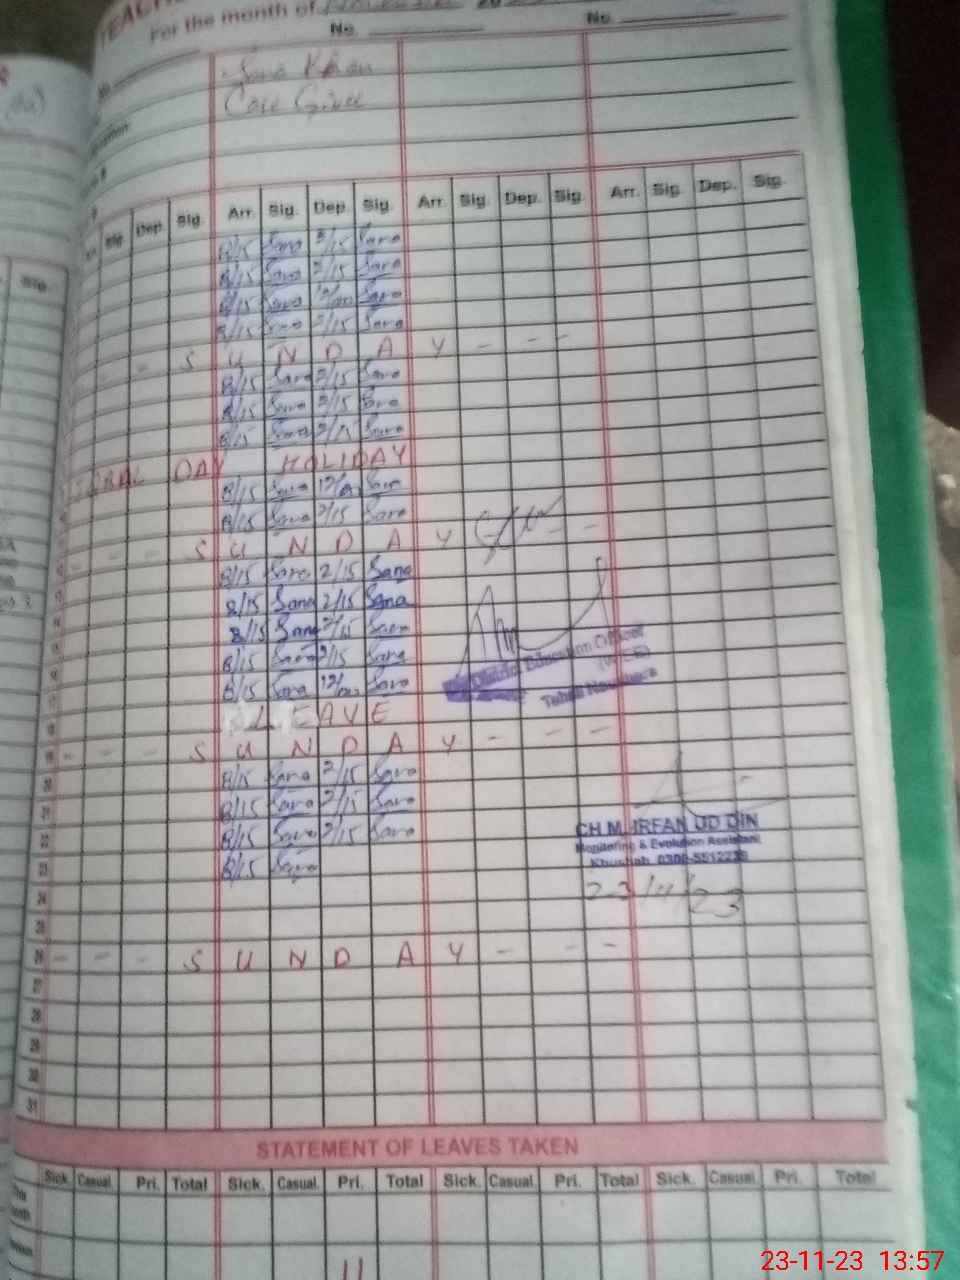 For the month of
No. No.
Sana Khan
Care Giver
Sig. Dep. Sig. Arr. Sig. Dep. Sig. Arr. Sig. Dep. Sig. Arr. Sig. Dep. Sig.
8/15 Sana 2/15 Sana
8/15 Sana 2/15 Sana
8/15 Sana Sana
8/15 Sana 2/15 Sana
- - S U N D A Y - - -
8/15 Sana 2/15 Sana
8/15 Sana 2/15 Sana
8/15 Sana 2/15 Sana
DAY HOLIDAY
8/15 Sana Sana
8/15 Sana 2/15 Sana
- - - S U N D A Y - -
8/15 Sana 2/15 Sana
8/15 Sana 2/15 Sana
8/15 Sana 2/15 Sana
8/15 Sana 2/15 Sana
8/15 Sana Sana
District Education Officer
(W-EE)
Tehsil
17
18 LEAVE
19 - - - S U N D A Y - - -
20 8/15 Sana 2/15 Sana
21 8/15 Sana 2/15 Sana
22 8/15 Sana 2/15 Sana
23 8/15 Sana
CH.M. IRFAN UD DIN
Monitoring & Evolution Assistant
Khushab
23/11/23
24
25
26 - - - S U N D A Y - - -
27
28
29
30
31
STATEMENT OF LEAVES TAKEN
Sick. Casual. Pri. Total Sick. Casual. Pri. Total Sick. Casual. Pri. Total Sick. Casual. Pri. Total
This
23-11-23 13:57